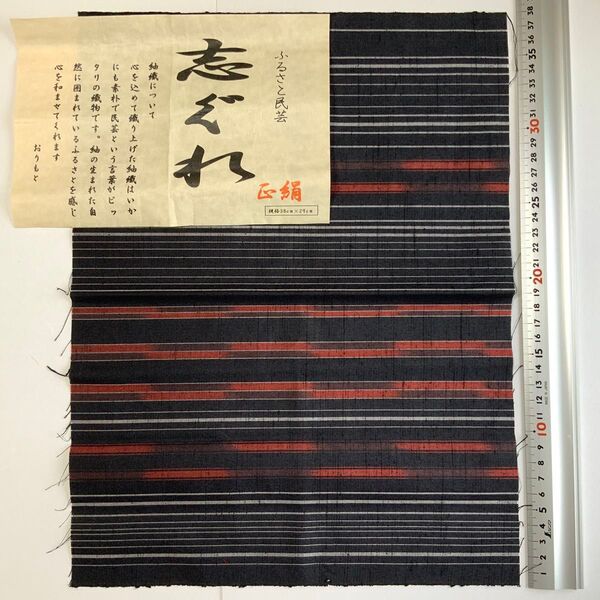 ふるさと民芸
志ぐれ
正絹
規格38cm×29cm
紬織について
心を込めて織り上げた紬織はいか
にも素朴で民芸という言葉がピッ
タリの織物です。紬の生まれた自
然に囲まれているふるさとを感じ
心を和ませてくれます
おりもと
38
37
36
35
34
33
32
31
30
29
28
27
26
25
24
23
22
21
20
19
18
17
16
15
14
13
12
11
10
9
8
7
6
5
4
3
2
1